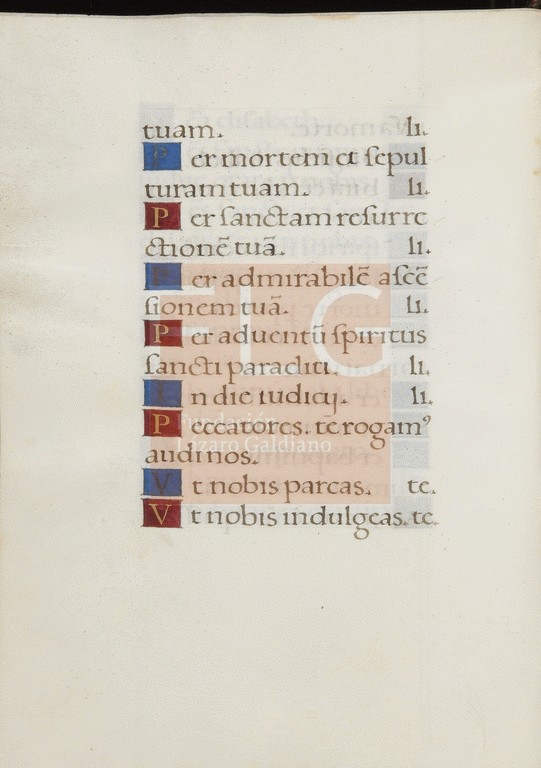 tuam. li.
Per mortem et sepul
turam tuam. li.
Per sanctam resurre
ctionē tuā. li.
Per admirabilē ascē
sionem tuā. li.
Per aduentū spiritus
sancti paracliti. li.
In die iudicij. li.
Peccatores. te rogamꝰ
audi nos.
Vt nobis parcas. te.
Vt nobis indulgeas. te.
FLG
Fundación
Lázaro Galdiano